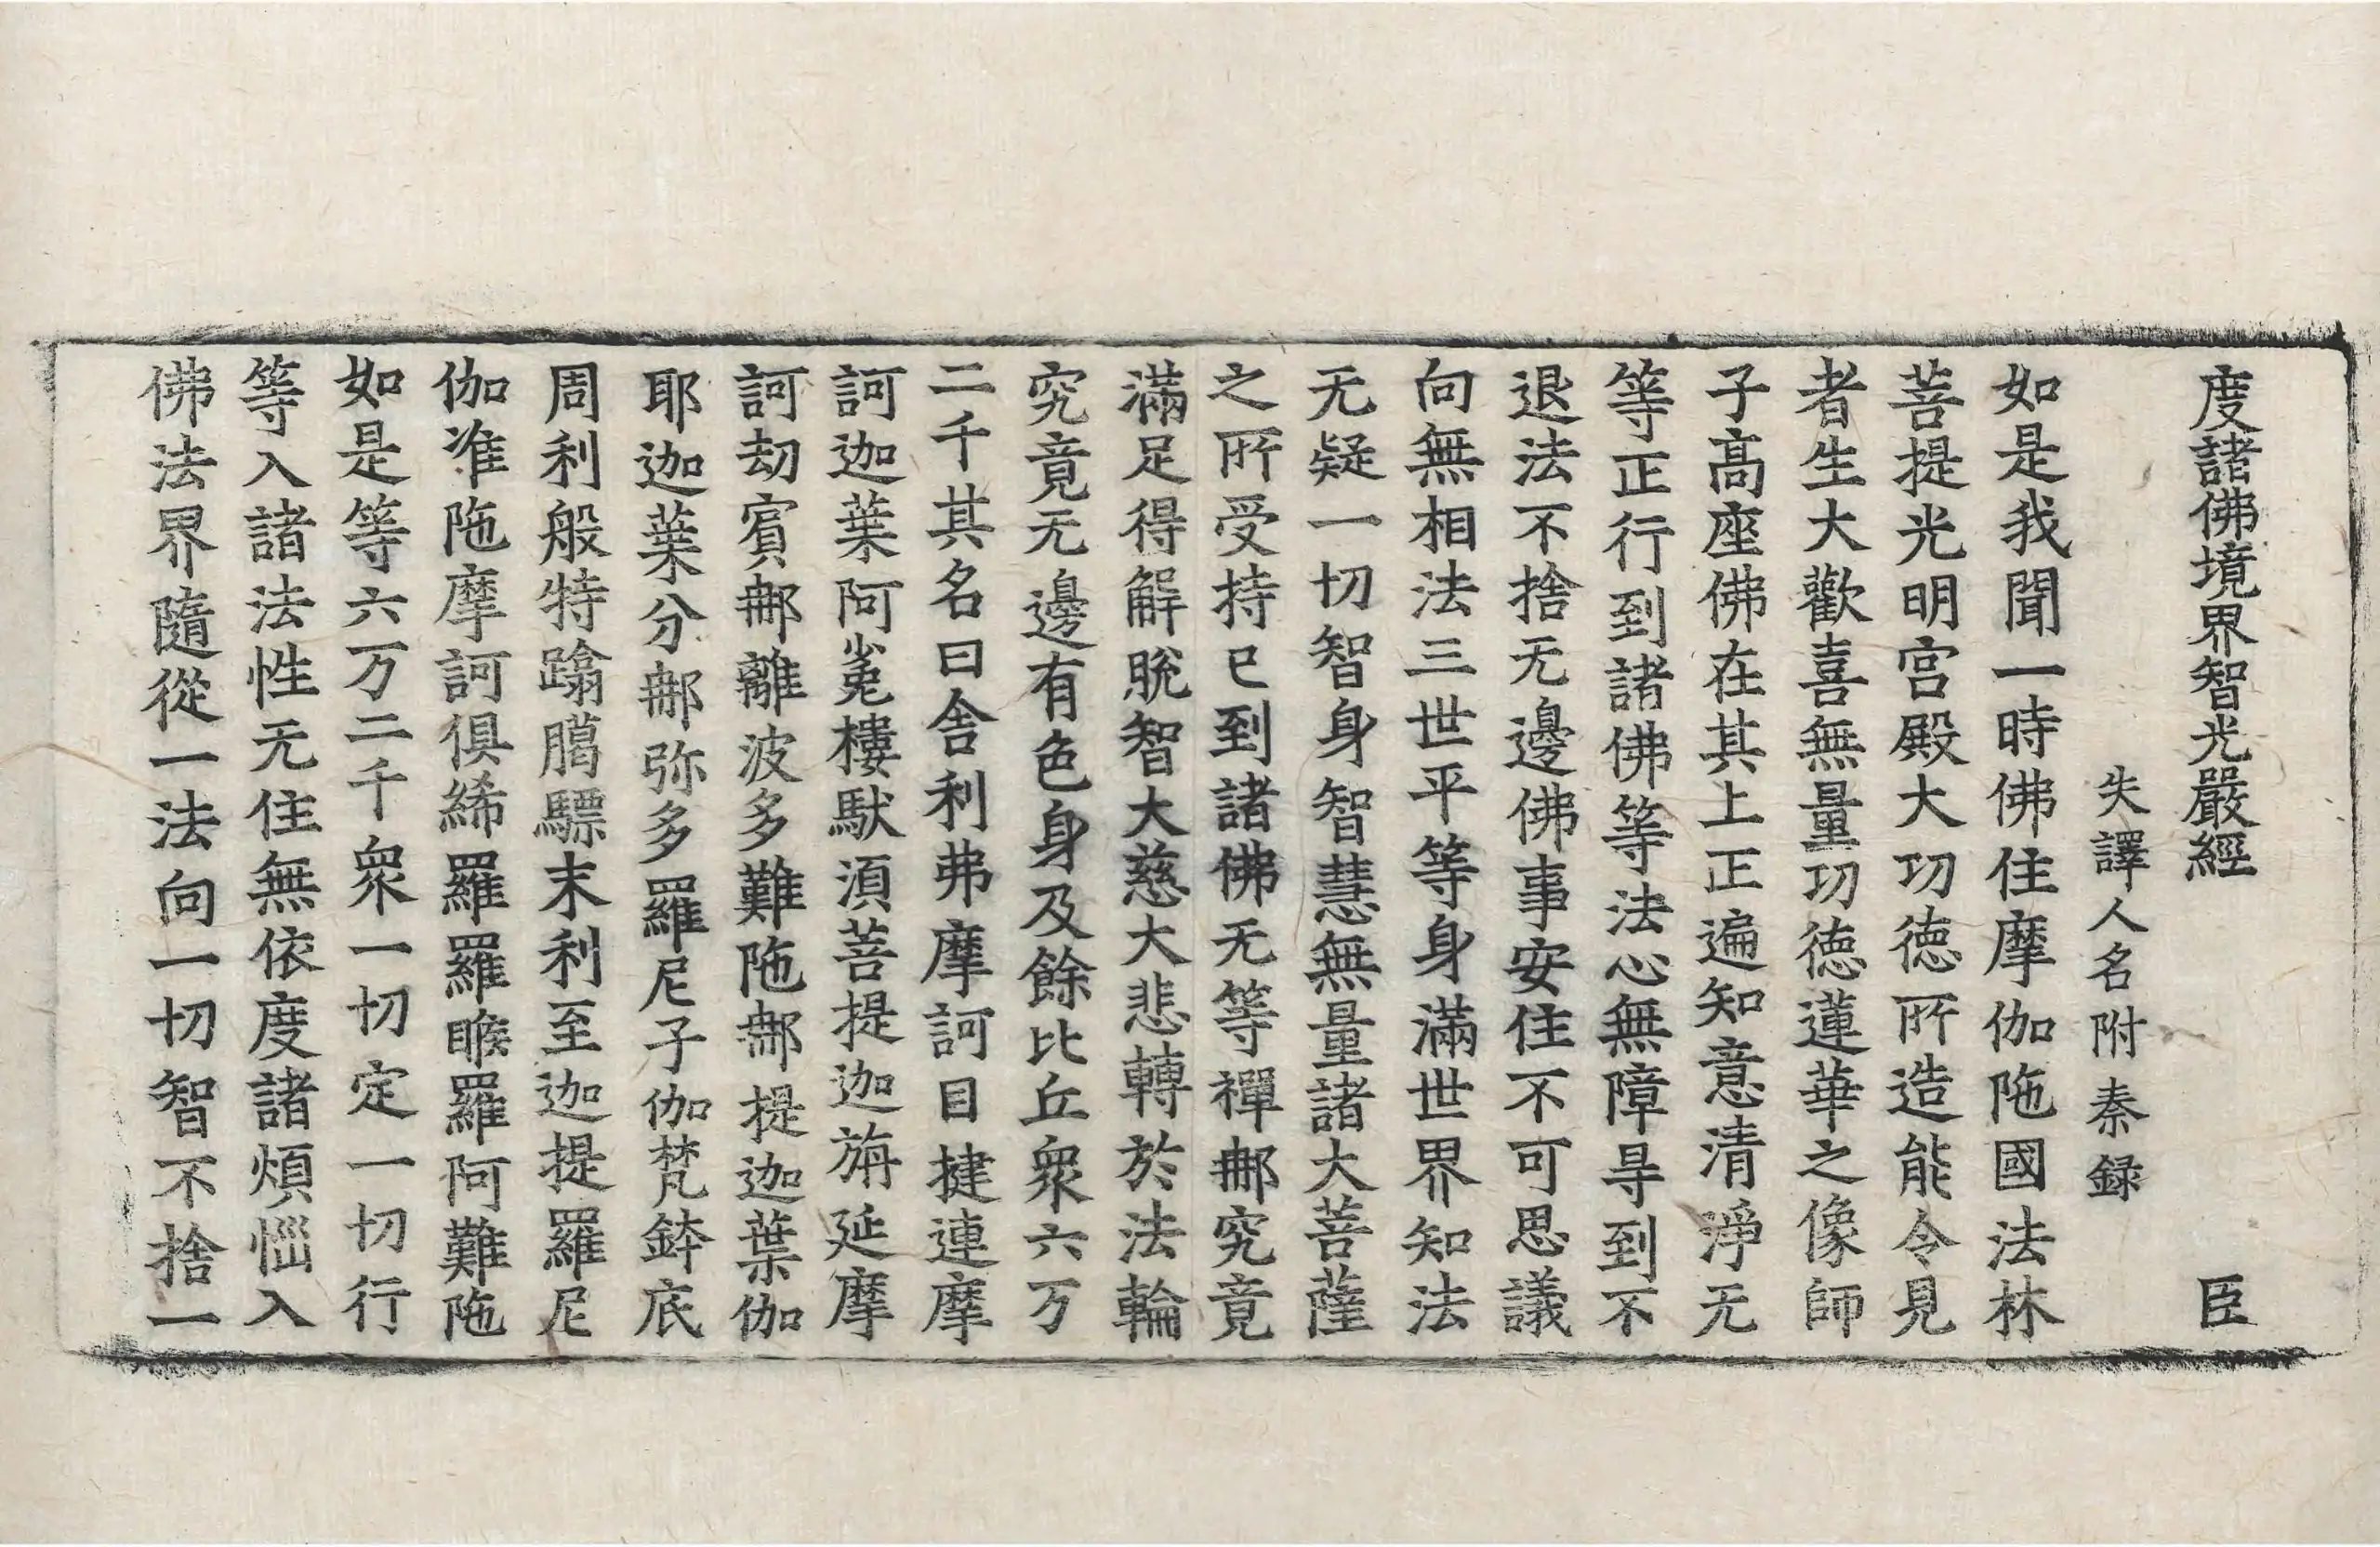 度諸佛境界智光嚴經 臣
失譯人名附秦録
如是我聞一時佛住摩伽陁國法林
菩提光明宫殿大功徳所造能令見
者生大歡喜無量功徳蓮華之像師
子髙座佛在其上正遍知意清淨无
等正行到諸佛等法心無障㝵到不
退法不捨无邊佛事安住不可思議
向無相法三世平等身滿世界知法
无疑一切智身智慧無量諸大菩薩
之所受持已到諸佛无等禪郍究竟
滿足得解脫智大慈大悲轉於法輪
究竟无邊有色身及餘比丘衆六万
二千其名曰舎利弗摩訶目揵連摩
訶迦葉阿㝹樓馱湏菩提迦旃延摩
訶劫賔郍離波多難陁郍提迦葉伽
耶迦葉分郍弥多羅尼子伽梵鉢底
周利般特蹹臈驃末利至迦提羅尼
伽准陁摩訶俱絺羅羅睺羅阿難陁
如是等六万二千衆一切定一切行
等入諸法性无住無依度諸煩惱入
佛法界隨從一法向一切智不捨一